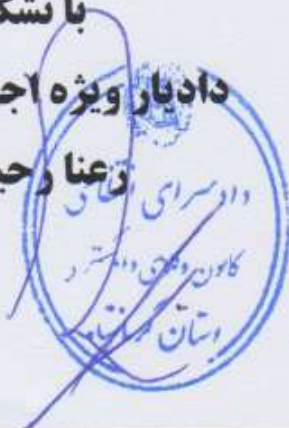 با تشکر
دادیار ویژه اجر
رعنا رحیم
دادسرای انتظامی
کانون وکلای دادگستری
استان کرمانشاه